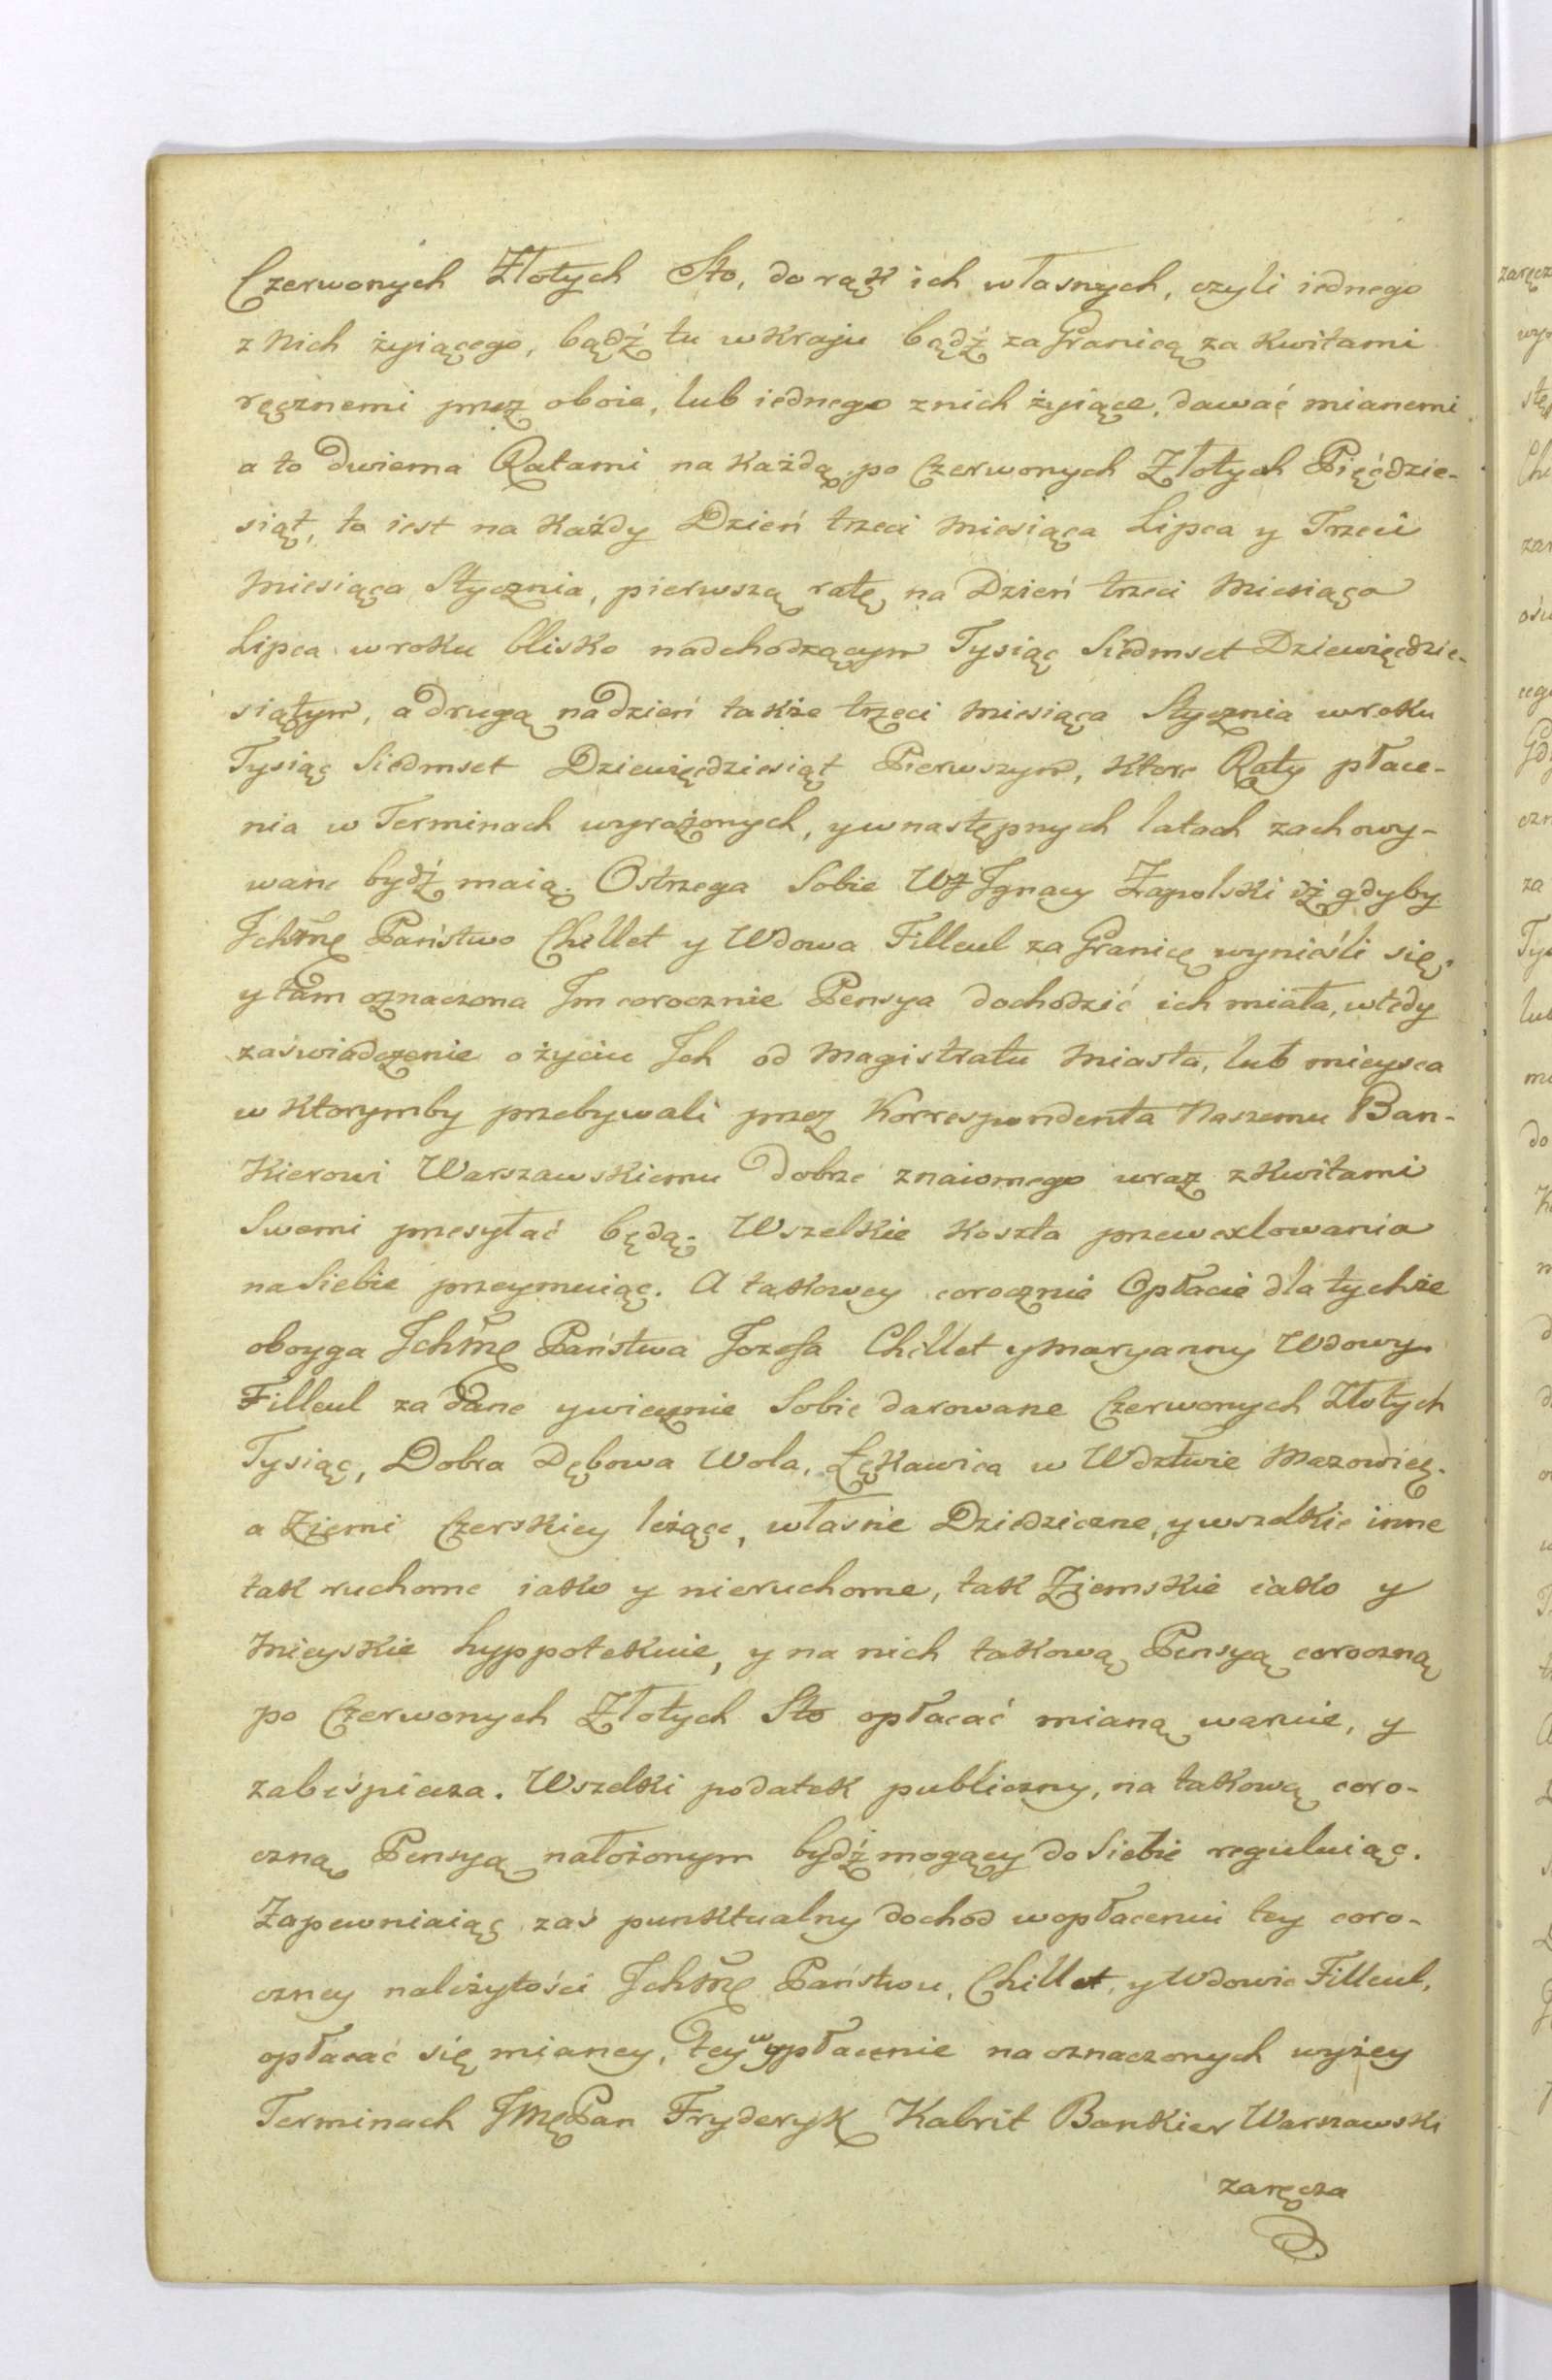 Czerwonych Złotych Sto, do rąk ich własnych, czyli iednego
z Nich żyiącego, bądź tu w Kraju bądź za Granicą za Kwitami
ręcznemi przez oboie, lub iednego z nich żyiące, dawać mianemi
a to dwiema Ratami na Każdą po Czerwonych Złotych Pięćdzie-
siąt, to iest na Każdy Dzień trzeci Miesiąca Lipca y Trzeci
Miesiąca Stycznia, pierwszą ratę na Dzień trzeci Miesiąca
Lipca w roku blisko nadchodzącym Tysiąc Siedmset Dziewięćdzie-
siątym, a drugą na dzień także trzeci Miesiąca Stycznia w roku
Tysiąc Siedmset Dziewięćdziesiąt Pierwszym, Ktore Raty płace-
nia w Terminach wyrażonych, y w następnych latach zachowy-
wane bydź maią. Ostrzega Sobie WJ Ignacy Zapolski iż gdyby
Jchmę Państwo Chillet y Wdowa Filleul za Granicę wynieśli się,
y tam oznaczona Im corocznie Pensya dochodzić ich miała, wtedy
zaświadczenie o życiu Ich od Magistratu Miasta, lub mieysca
w Ktorymby przebywali przez Korrespondenta Naszemu Ban-
Kierowi Warszawskiemu dobrze znaiomego wraz z Kwitami
Swemi przesyłać będą; Wszelkie Koszta przewexlowania
na Siebie przeymuiąc. A takowey corocznie Opłacie dla tychże
oboyga Jchmę Państwa Jozefa Chillet y Maryanny Wdowy
Filleul za dane y wiecznie Sobie darowane Czerwonych Złotych
Tysiąc, Dobra Dębowa Wola, Łękawica w Wdztwie Mazowiec.
a Ziemi Czerskiey leżące, własne Dziedziczne, y wszelkie inne
tak ruchome iako y nieruchome, tak Ziemskie iako y
Mieyskie hyppotekuie, y na nich takową Pensyą coroczną
po Czerwonych Złotych Sto opłacać mianą waruie, y
zabeśpiecza. Wszelki podatek publiczny, na takową coro-
czną Pensyą nałożonym bydź mogący do Siebie reguluiąc.
Zapewniaiąc zaś punktualny dochod w opłaceniu tey coro-
czney należytości Jchmę Państwu, Chillet, y Wdowie Filleul,
opłacać się mianey, tey wypłacenie na oznaczonych wyżey
Terminach JmęPan Fryderyk Kabrit Bankier Warszawski
zaręcza